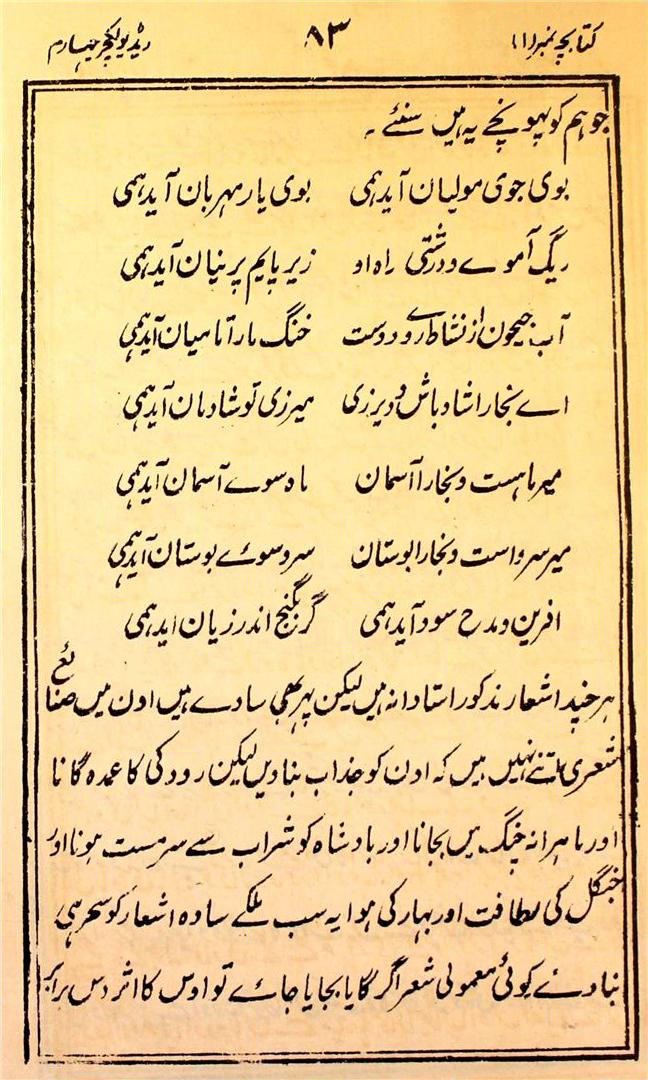 کتابچہ نمبر (۱۱) ۸۳ ریڈیو لکچر چہارم
جو ہم کو پہونچے یہ ہیں سنئے ۔
بوی جوی مولیان آید ہمی بوی یار مہربان آید ہمی
ریگ آموے و درشتی راہ او زیر پایم پرنیان آید ہمی
آب جیحون از نشاط روے دوست خنگ مارا تا میان آید ہمی
اے بخارا شاد باش و دیر زی میر زی تو شادمان آید ہمی
میر ماہست و بخارا آسمان ماہ سوے آسمان آید ہمی
میر سرو است و بخارا بوستان سرو سوئے بوستان آید ہمی
افرین و مدح سود آید ہمی گر بگنج اندر زیان اید ہمی
ہر چند اشعار مذکور استادانہ ہیں لیکن پہر بھی سادے ہیں اون میں صنائع
شعری اتنے نہیں ہیں کہ اون کو جذاب بنا دیں لیکن رودکی کا عمدہ گانا
اور ماہرانہ چنگ میں بجانا اور بادشاہ کو شراب سے سرمست ہونا اور
جنگل کی لطافت اور بہار کی ہوا یہ سب ملکے سادہ اشعار کو سحر ہی
بنا دے کوئی معمولی شعر اگر گایا بجایا جاے تو اوس کا اثر دس برابر